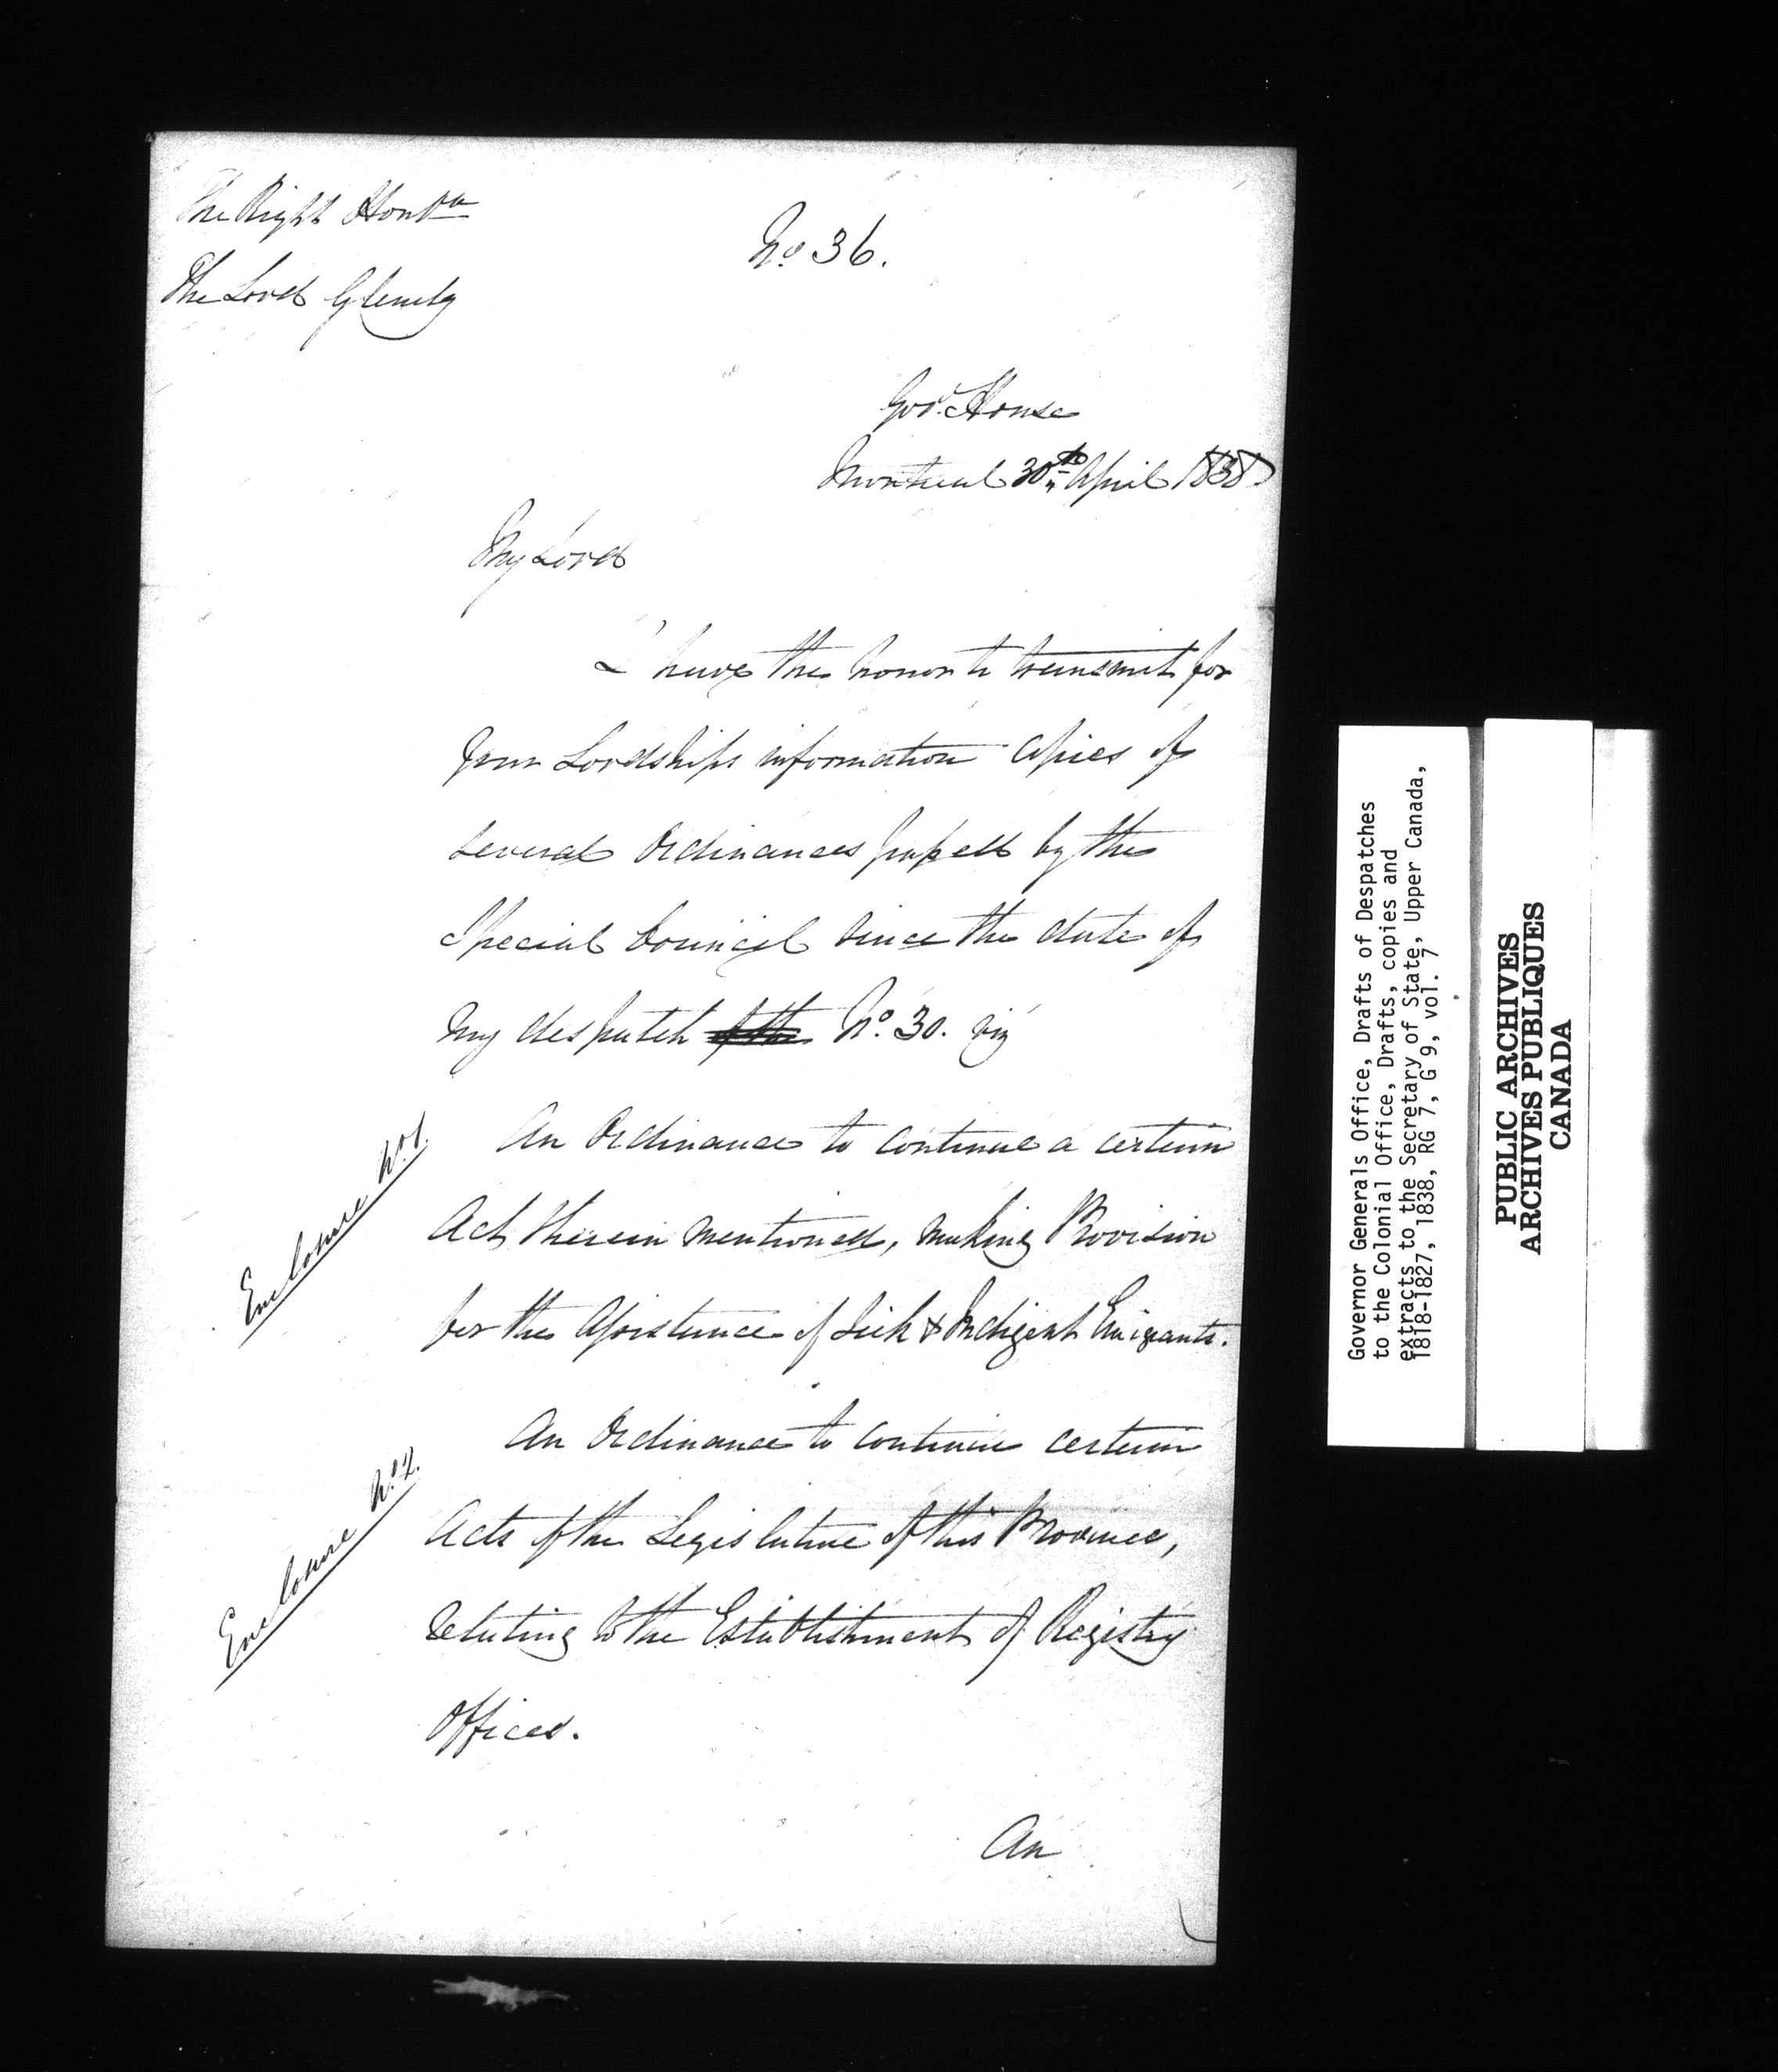 The Right Honble
The Lord Glenelg
No 36.
Govt. House
Montreal 30th April 1838
My Lord
I have the honor to transmit for
Your Lordships information Copies of
several Ordinances passed by the
Special Council since the date of
my despatch of the No. 30. viz
Enclosure No. 1.
An Ordinance to continue a certain
Act therein mentioned, making Provision
for the Assistance of Sick & Indigent Emigrants.
Enclosure No. 2.
An Ordinance to continue certain
Acts of the Legislature of this Province,
relating to the Establishment of Registry
Offices.
An
Governor Generals Office, Drafts of Despatches
to the Colonial Office, Drafts, copies and
extracts to the Secretary of State, Upper Canada,
1818-1827, 1838, RG 7, G 9, vol. 7
PUBLIC ARCHIVES
ARCHIVES PUBLIQUES
CANADA